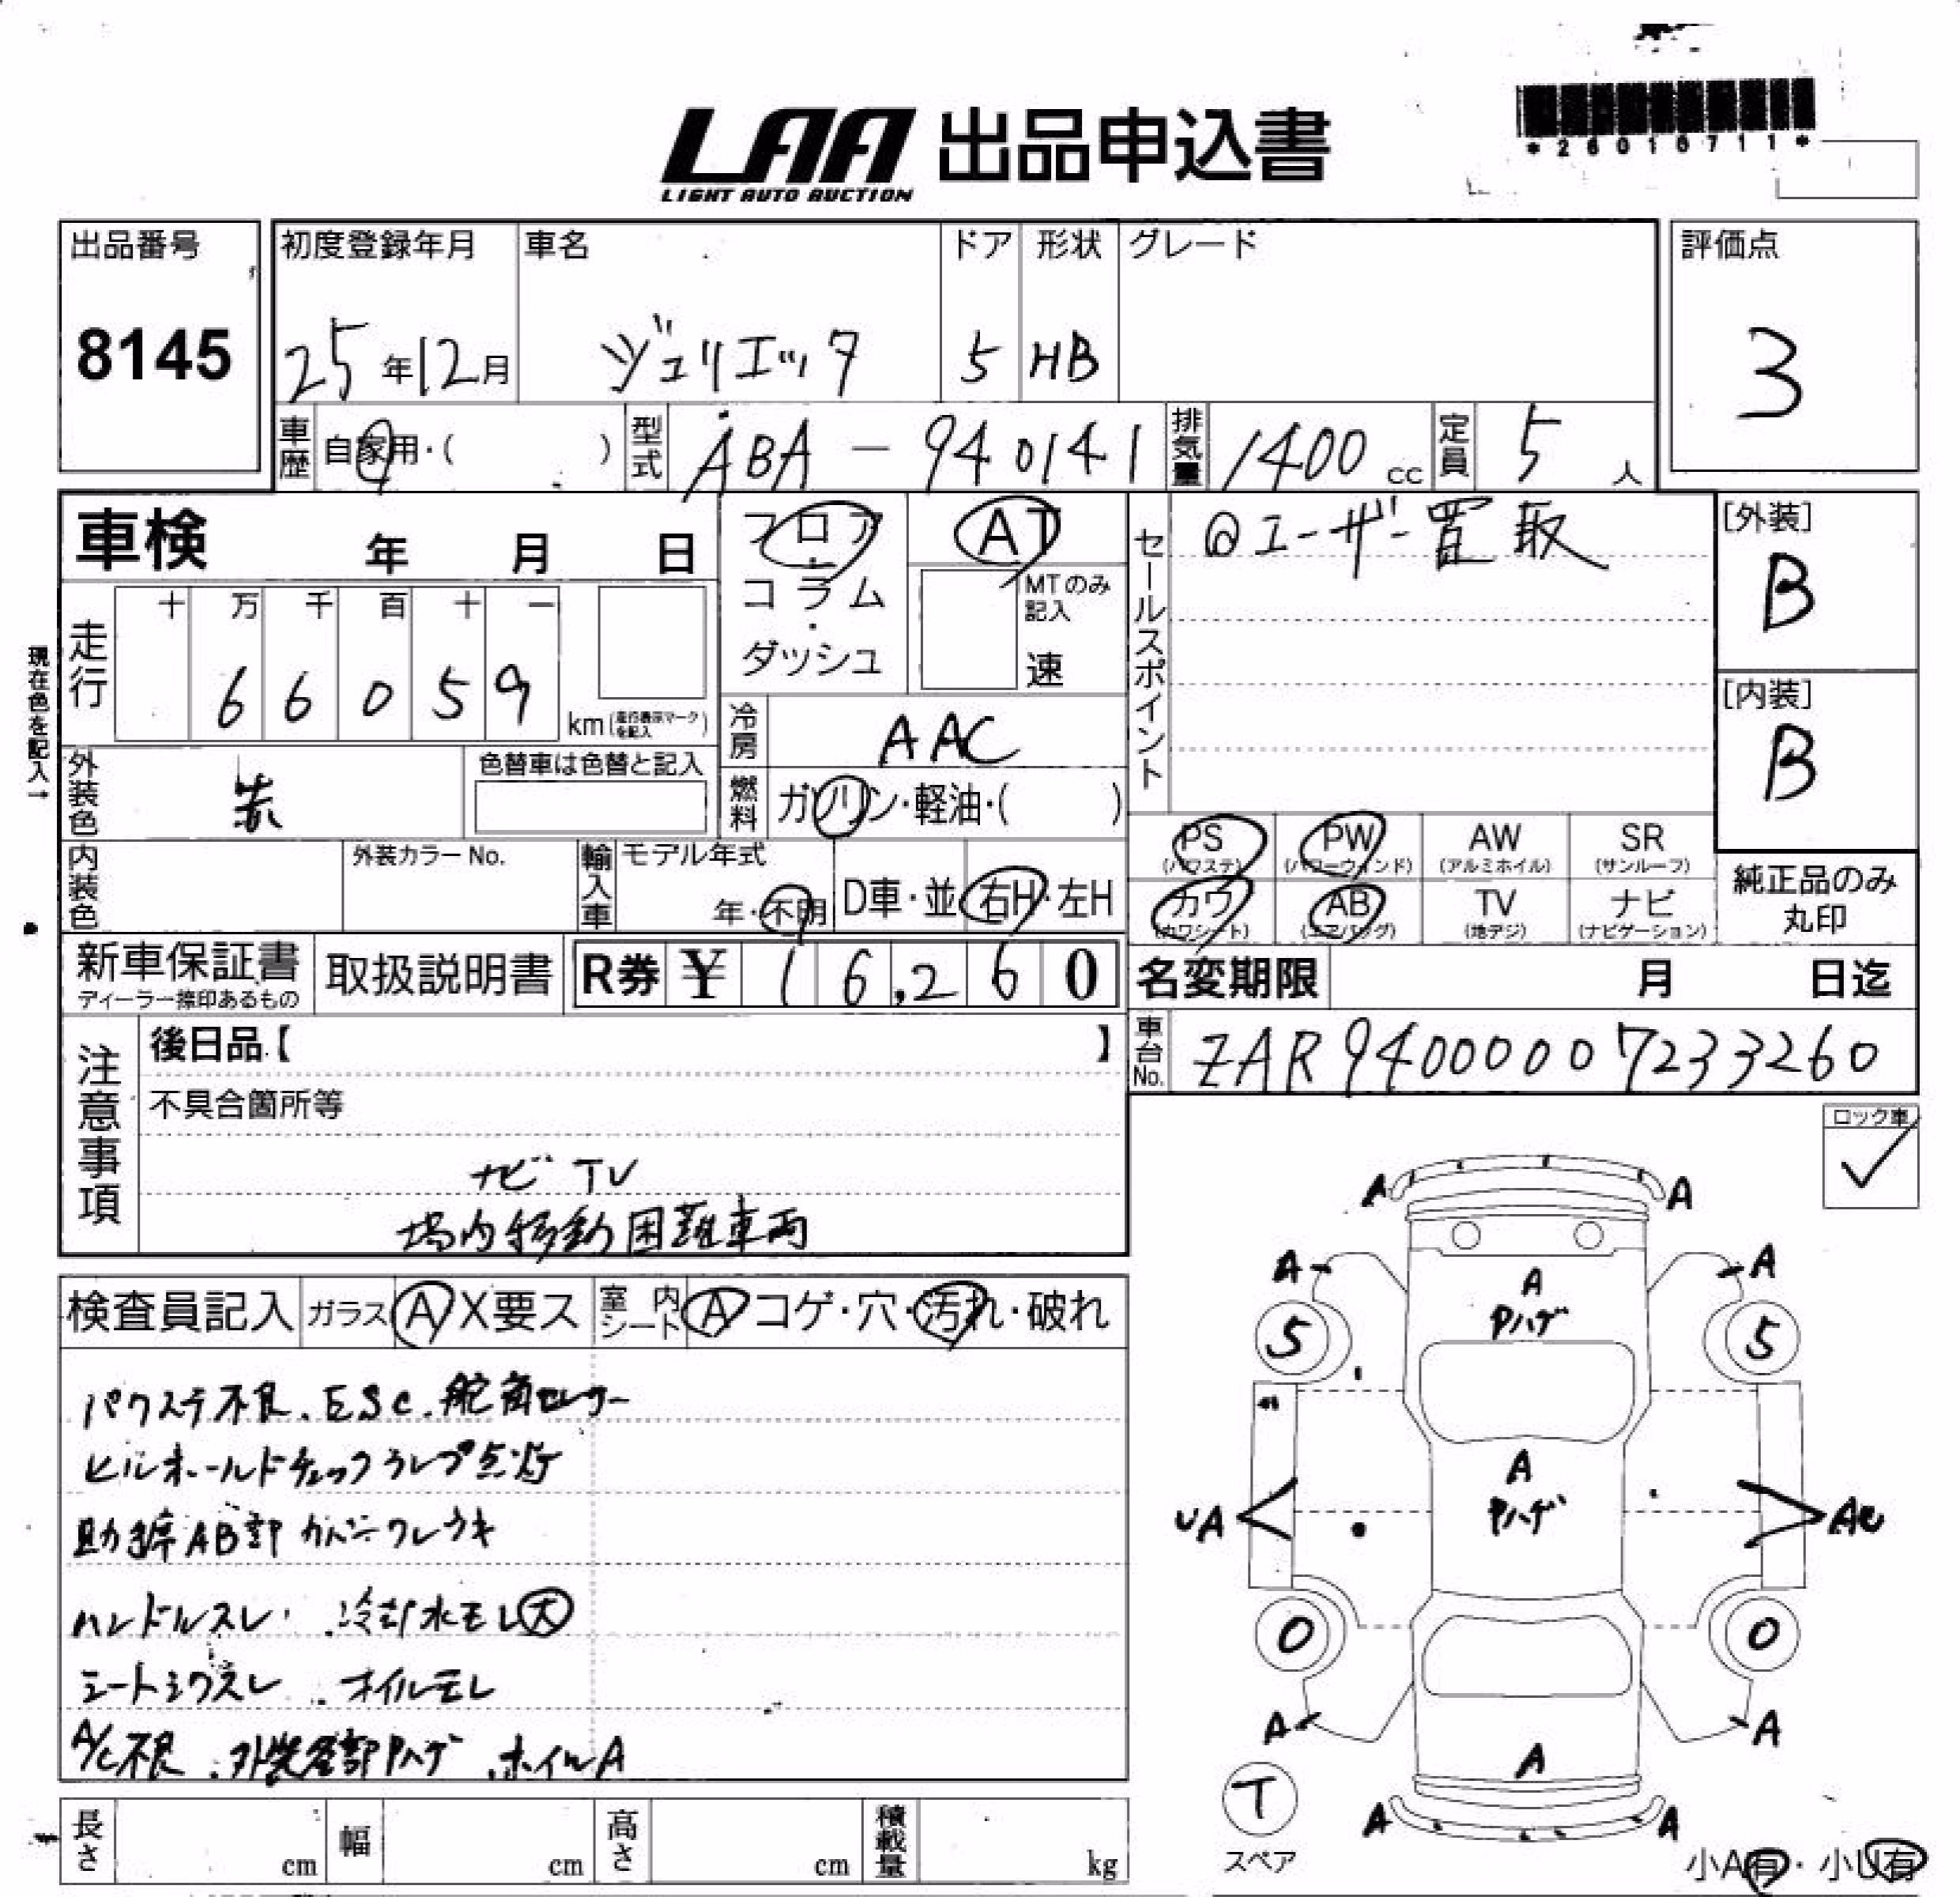 *26016711*
LAA 出品申込書
LIGHT AUTO AUCTION
出品番号 初度登録年月 車名 ドア 形状 グレード 評価点
8145 25年12月 ジュリエッタ 5 HB 3
車歴 自家用・( ) 型式 ABA-940141 排気量 1400cc 定員 5人
車検 年 月 日 フロア AT セールスポイント @ユーザー買取 [外装]
B
コラム MTのみ記入
ダッシュ 速
走行 十 万 千 百 十 一
66059 km(走行表示マークを記入)
現在色を記入→
[内装]
B
冷房 AAC
外装色 赤 色替車は色替と記入
燃料 ガソリン・軽油・( )
PS PW AW SR
(パワステ) (パワーウィンド) (アルミホイル) (サンルーフ)
内装色 外装カラーNo. 輸入車 モデル年式 年・不明 D車・並 右H・左H
カワ AB TV ナビ
(カワシート) (エアバッグ) (地デジ) (ナビゲーション)
純正品のみ
丸印
新車保証書 取扱説明書 R券 ¥ 16,260 名変期限 月 日迄
ディーラー捺印あるもの
注意事項 後日品【 】 車台No. ZAR94000007233260
不具合箇所等
ロック車
ナビ TV
場内移動困難車両
検査員記入 ガラス A X要ス 室内シート A コゲ・穴・汚れ・破れ
パワステ不良、ESC、舵角センサー
ヒルホールドチェックランプ点灯
助手席AB部カバーワレウキ
ハンドルスレ 冷却水モレ大
シートシワスレ オイルモレ
A/C不良 外装各部Pハゲ ホイルA
A A
A A A
Pハゲ
5 5
A
UA Pハゲ AU
0 0
A A A
T
スペア
A A
小A有・小U有
長さ cm 幅 cm 高さ cm 積載量 kg